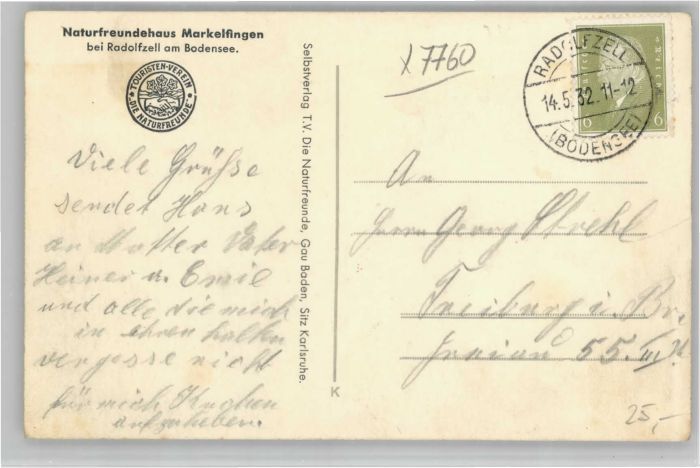 Naturfreundehaus Markelfingen
bei Radolfzell am Bodensee.
TOURISTEN-VEREIN
"DIE NATURFREUNDE"
Viele Grüsse
sendet Hans
an Mutter Vater
Heiner u. Emil
und alle die mich
in
vergesse nicht
für mich Kuchen
aufzuheben.
Selbstverlag T.V. Die Naturfreunde, Gau Baden, Sitz Karlsruhe.
K
x 7760
RADOLFZELL
14.5.32.11-12
(BODENSEE)
6 6
An
Herrn Georg Strehl
Freiburg i. Br.
55. III
25,-